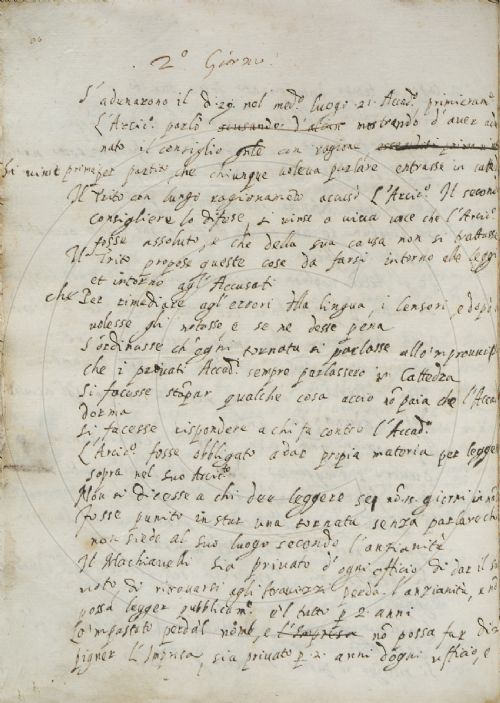 2º Giorno
S'adunarono il dì 29. nel medº luogo 21. Accadⁱ primieramᵗᵉ
L'Arcicº parlò scusando mostrando d'aver adu
nato il consiglio con ragione
Si vinse prima per partito che chiunque voleva parlare entrasse in catte
Il Trito con lungo ragionamento accusò L'Arcicº Il secondo
consigliere lo difese, si vinse a viva voce che l'Arcicº
fosse assoluto, e che della sua causa non si trattasse
Il Trito propose queste cose da farsi intorno alle leggi
et intorno agl'Accusati
che Per rimediare agl'errori della lingua, i Censori, e dopo
volesse gli notasse e se ne desse pena
S'ordinasse ch'ogni tornata si parlasse allo improvviso
che i privati Accadⁱ sempre parlassero in Cattedra
Si facesse stāpar qualche cosa acciò nō paia che l'Accad
dorma
Si facesse rispondere a chi fa contro l'Accadª
L'Arcicº fosse obbligato a dar propia materia per leggere
sopra nel suo Arcicº
Non si dicesse a chi dee leggere se nō 15. giorni in
fosse punito in star una tornata senza parlare chi
non siede al suo luogo secondo l'anzianità
Il Machiavelli sia privato d'ogni officio, di dar il suo
voto di ritrovarsi agli stravizzi perda l'anzianità, e nō
possa legger pubblicamᵗᵉ e'l tutto per 2. anni
Lo'mpastato perda'l nome, e l'Impresa nō possa far di
pigner l'Impresa, sia privato per 2. anni d'ogni ufficio, e